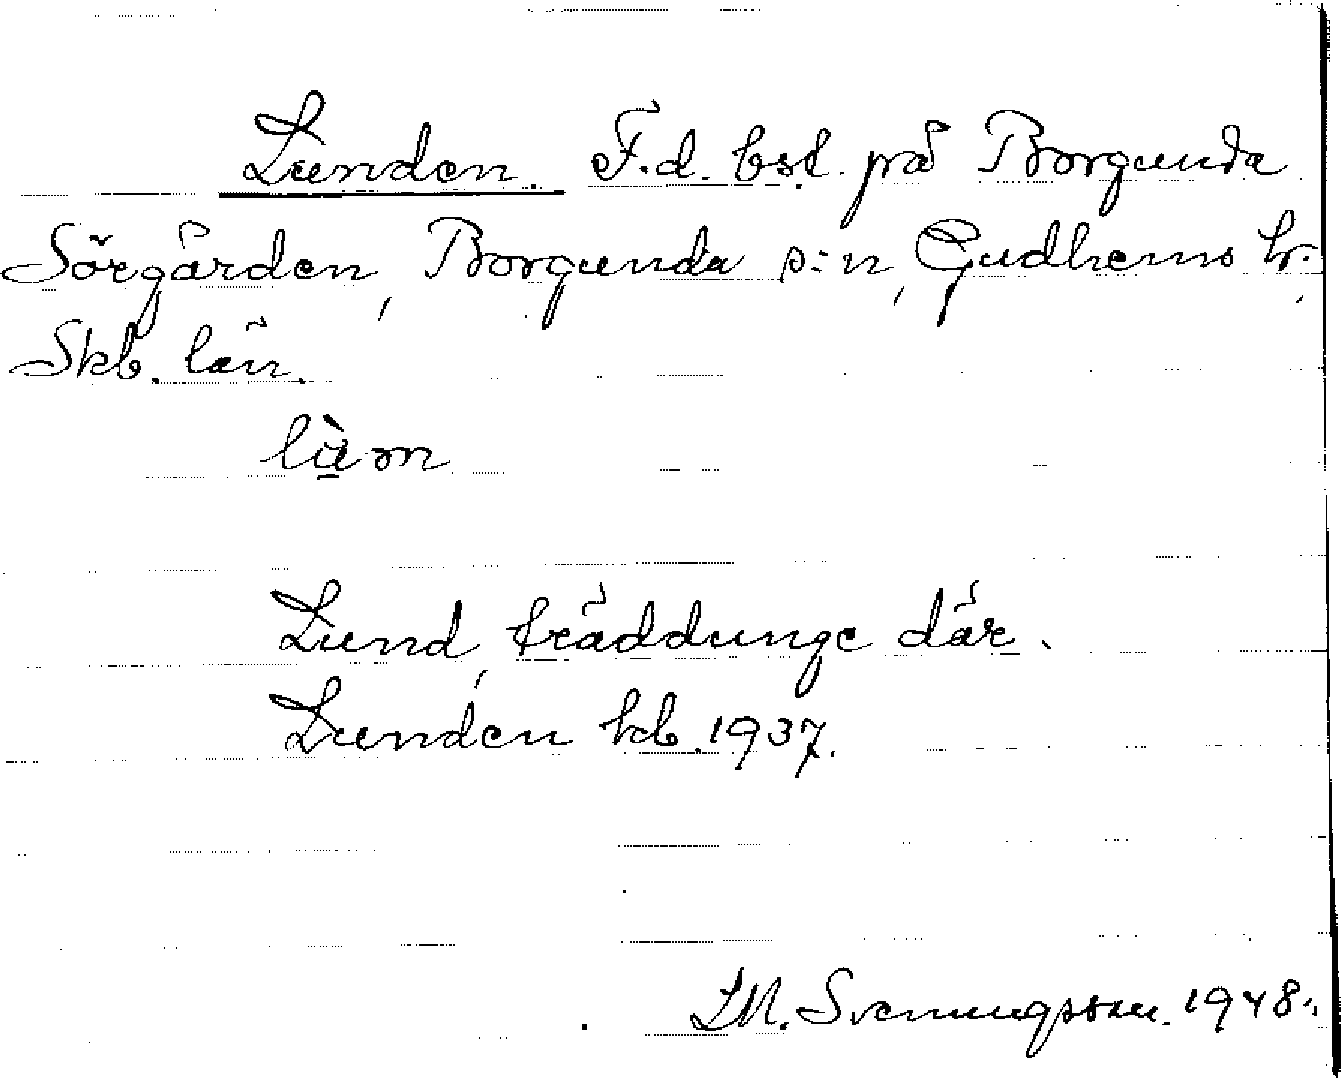 Lunden. F.d. bst. på Borgunda
Sörgården, Borgunda s:n, Gudhems hr.
Skb. län.
Lund, träddunge där.
Lunden kb. 1937.
Svenningsson 1948.